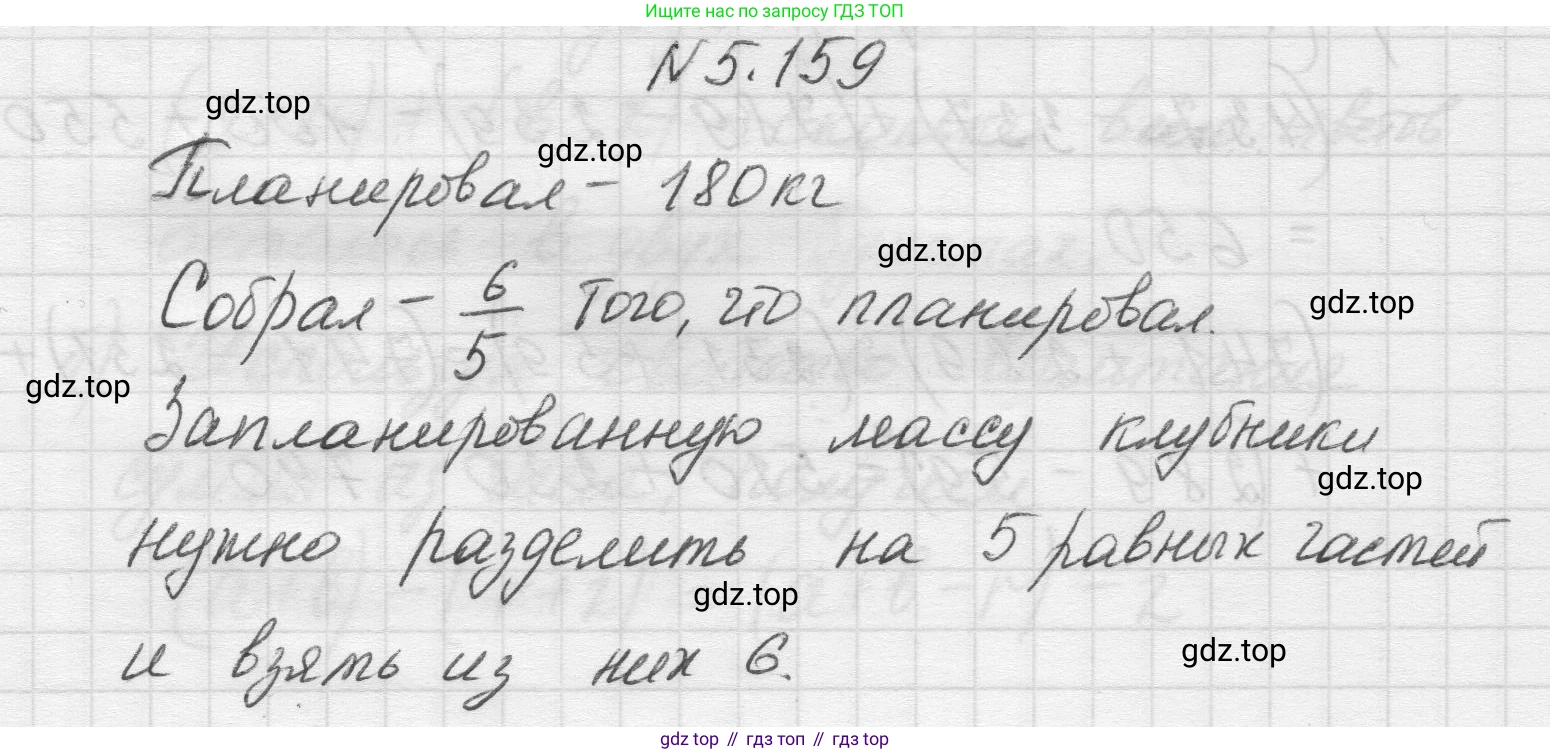 Ищите нас по запросу ГДЗ ТОП
N 5.159
gdz.top
gdz.top
Планировал - 180 кг
gdz.top
Собрал - 6/5 того, что планировал.
gdz.top
gdz.top
Запланированную массу клубники
gdz.top
нужно разделить на 5 равных частей
gdz.top
и взять из них 6.
gdz.top
gdz top // гдз топ // гдз top